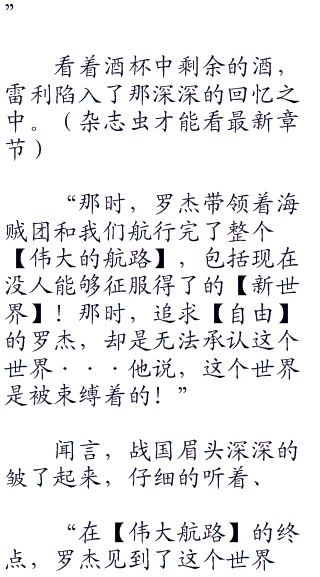 ”
看着酒杯中剩余的酒，
雷利陷入了那深深的回忆之
中。（杂志虫才能看最新章
节）
“那时，罗杰带领着海
贼团和我们航行完了整个
【伟大的航路】，包括现在
没人能够征服得了的【新世
界】！那时，追求【自由】
的罗杰，却是无法承认这个
世界···他说，这个世界
是被束缚着的！”
闻言，战国眉头深深的
皱了起来，仔细的听着、
“在【伟大航路】的终
点，罗杰见到了这个世界